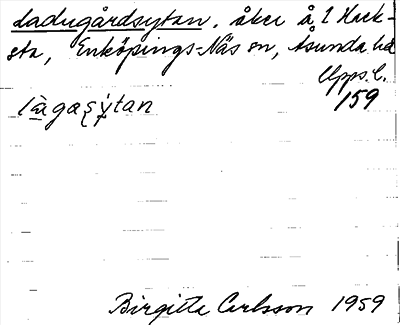 Ladugårdsytan, åker å 1 Hack-
sta, Enköpings-Näs sn, Åsunda hd
Upps. l.
làgaşỵtan 159
Birgitta Carlsson 1959